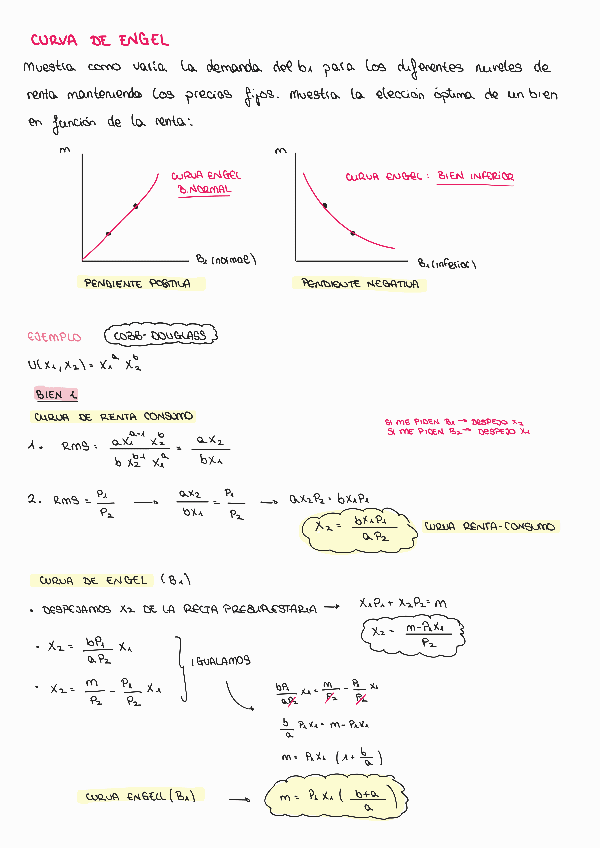 CURVA DE ENGEL
Muestra como varía la demanda del b1 para los diferentes niveles de
renta manteniendo los precios fijos. Muestra la elección óptima de un bien
en función de la renta:
m
CURVA ENGEL
B.NORMAL
B2 (normal)
PENDIENTE POSITIVA
m
CURVA ENGEL: BIEN INFERIOR
B1 (inferior)
PENDIENTE NEGATIVA
EJEMPLO COBB-DOUGLASS
U(X1, X2) = X1^a X2^b
BIEN 1
CURVA DE RENTA CONSUMO
SI ME PIDEN B1 → DESPEJO X2
SI ME PIDEN B2 → DESPEJO X1
1. RMS = aX1^a-1 X2^b / b X2^b-1 X1^a = aX2 / bX1
2. RMS = P1/P2 → aX2/bX1 = P1/P2 → aX2P2 = bX1P1
X2 = bX1P1 / aP2 CURVA RENTA-CONSUMO
CURVA DE ENGEL (B1)
• DESPEJAMOS X2 DE LA RECTA PRESUPUESTARIA → X1P1 + X2P2 = m
X2 = m-P1X1 / P2
• X2 = bP1/aP2 X1
• X2 = m/P2 - P1/P2 X1
IGUALAMOS
bP1/aP2 X1 = m/P2 - P1/P2 X1
b/a P1X1 = m - P1X1
m = P1X1 (1 + b/a)
CURVA ENGELL (B1) → m = P1 X1 (b+a / a)